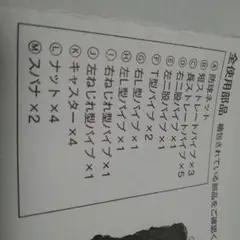 全使用部品 梱包されている部品をご確認く
Ⓐ防球ネット
Ⓑ短ストレートパイプ×3
Ⓒ長ストレートパイプ×5
Ⓓ右二股パイプ×1
Ⓔ左二股パイプ×1
ⒻT型パイプ×2
Ⓖ右L型パイプ×1
Ⓗ左L型パイプ×1
Ⓘ右ねじれ型パイプ×1
Ⓙ左ねじれ型パイプ×1
Ⓚキャスター×4
Ⓛナット×4
Ⓜスパナ×2